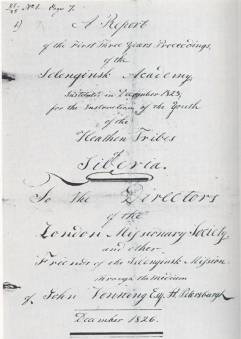 No 1. Page 7.
A Report
of the First Three Years Proceedings,
of the
Selenginsk Academy,
Instituted in December 1823,
for the Instruction of the Youth
of the
Heathen Tribes
of
Siberia.
To the Directors
of the
London Missionary Society
and other
Friends of the Selenginsk Mission
through the medium
of John Venning Esq. St. Petersburgh
December 1826.